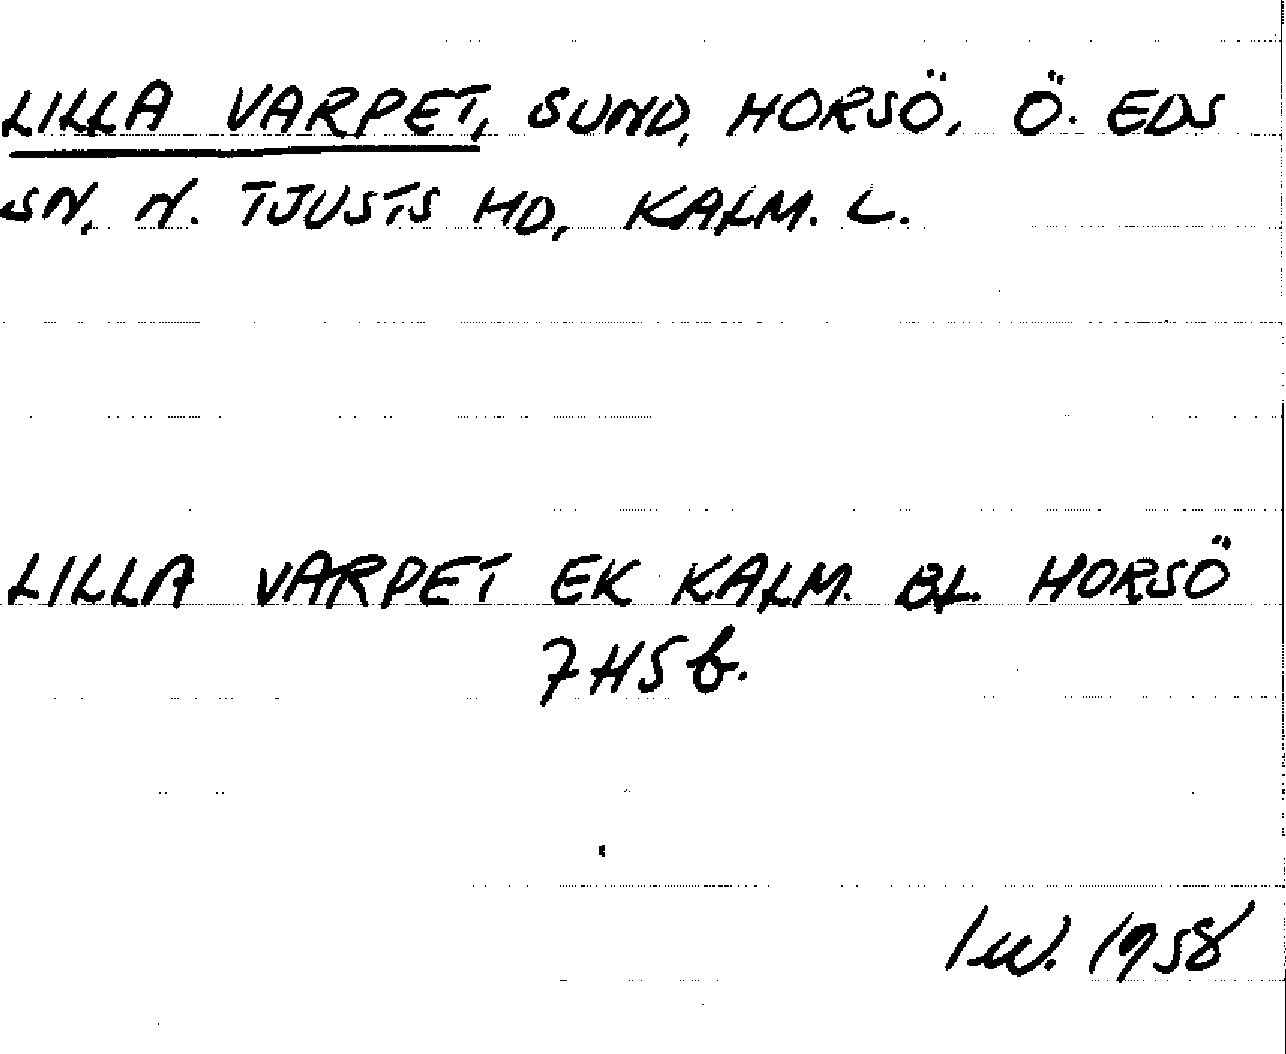 LILLA VARPET, SUND, HORSÖ, Ö. EDS
SN, N. TJUSTS HD, KALM. L.
LILLA VARPET EK KALM. BL. HORSÖ
7H5b.
1958